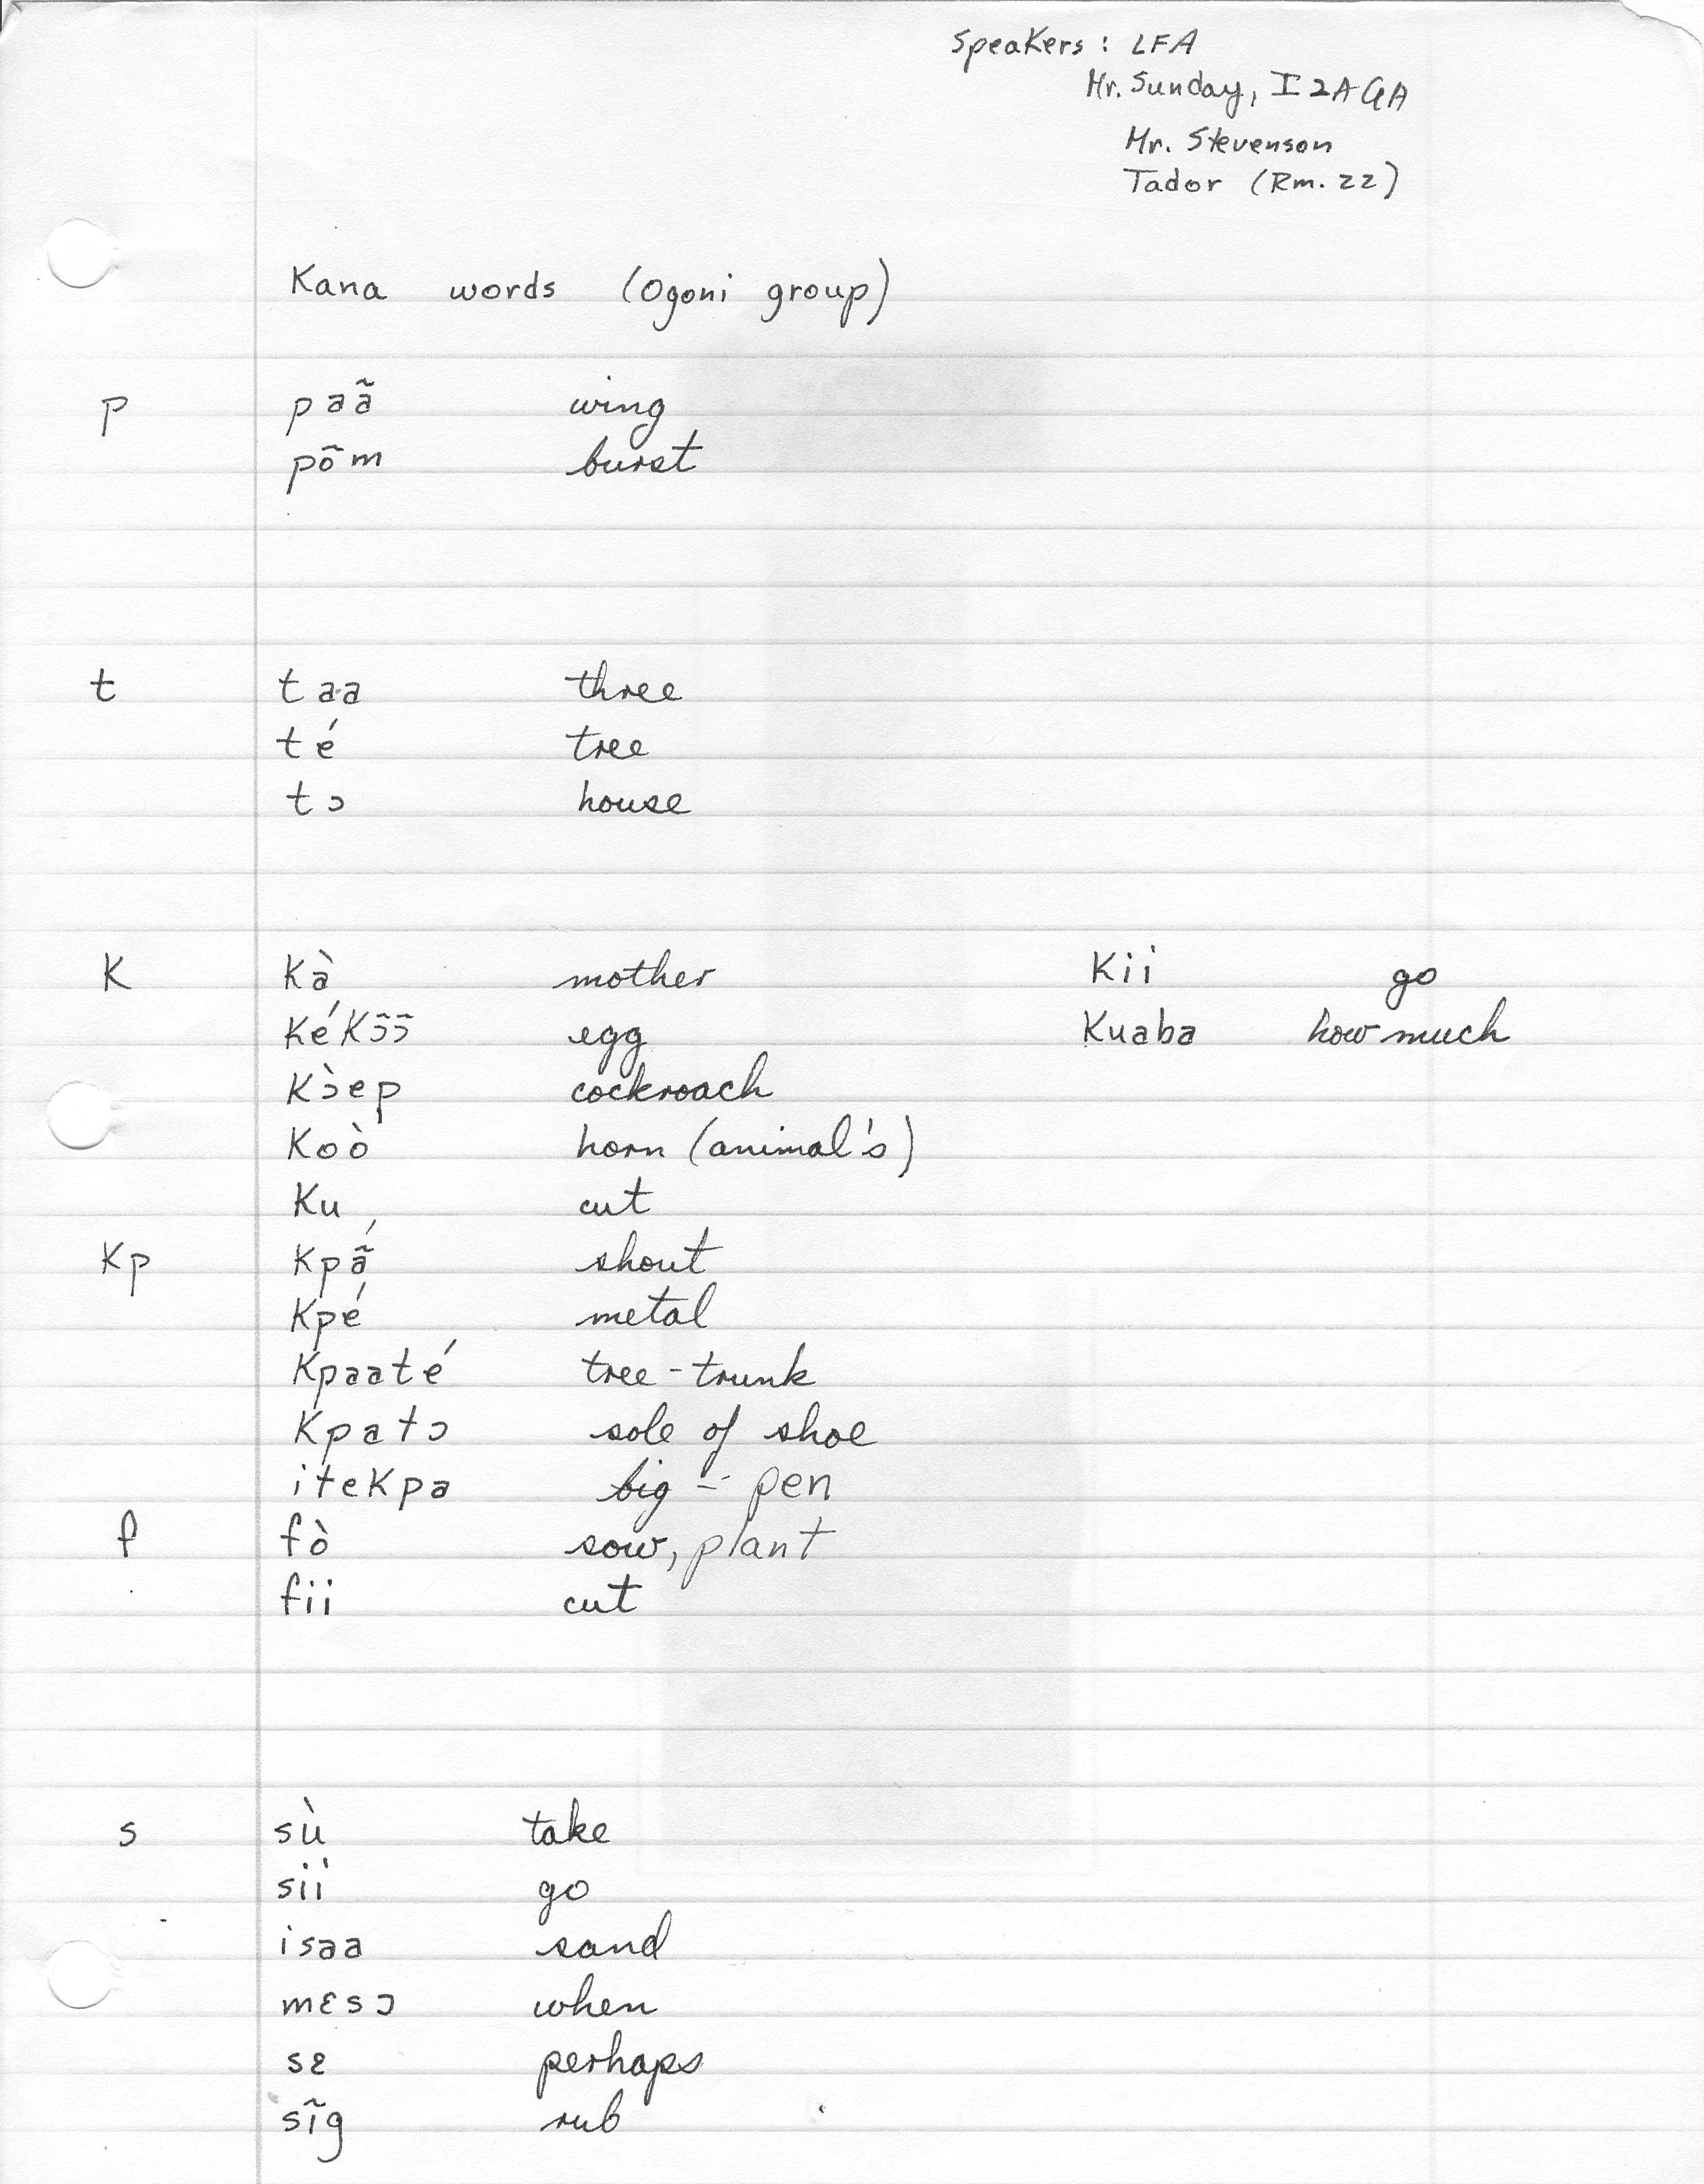 Speakers: LFA
Mr. Sunday, I2AGA
Mr. Stevenson
Tador (Rm. 22)
Kana words (Ogoni group)
p paã wing
põm burst
t taa three
té tree
tɔ house
K Kà mother Kii go
KéKɔ̃ɔ̃ egg Kuaba how much
Kɔ̀ep cockroach
Koò horn (animal's)
Ku cut
Kp Kpã́ shout
Kpé metal
Kpaaté tree-trunk
Kpatɔ sole of shoe
iteKpa big - pen
f fò sow, plant
fii cut
s sù take
siì go
isaa sand
mɛsɔ when
sɛ perhaps
sĩg rub